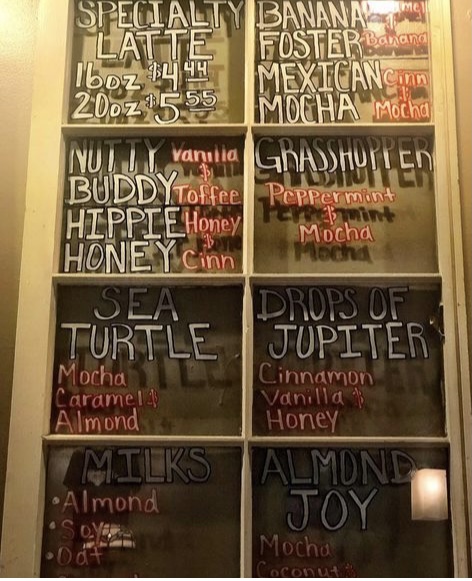 SPECIALTY
LATTE
16oz $4.44
20oz $5.55
BANANA Caramel
FOSTER & Banana
MEXICAN Cinn
MOCHA & Mocha
NUTTY Vanilla
BUDDY & Toffee
HIPPIE Honey
HONEY & Cinn
GRASSHOPPER
Peppermint
&
Mocha
SEA
TURTLE
Mocha
Caramel &
Almond
DROPS OF
JUPITER
Cinnamon
Vanilla &
Honey
MILKS
• Almond
• Soy
• Oat
ALMOND
JOY
Mocha
Coconut &